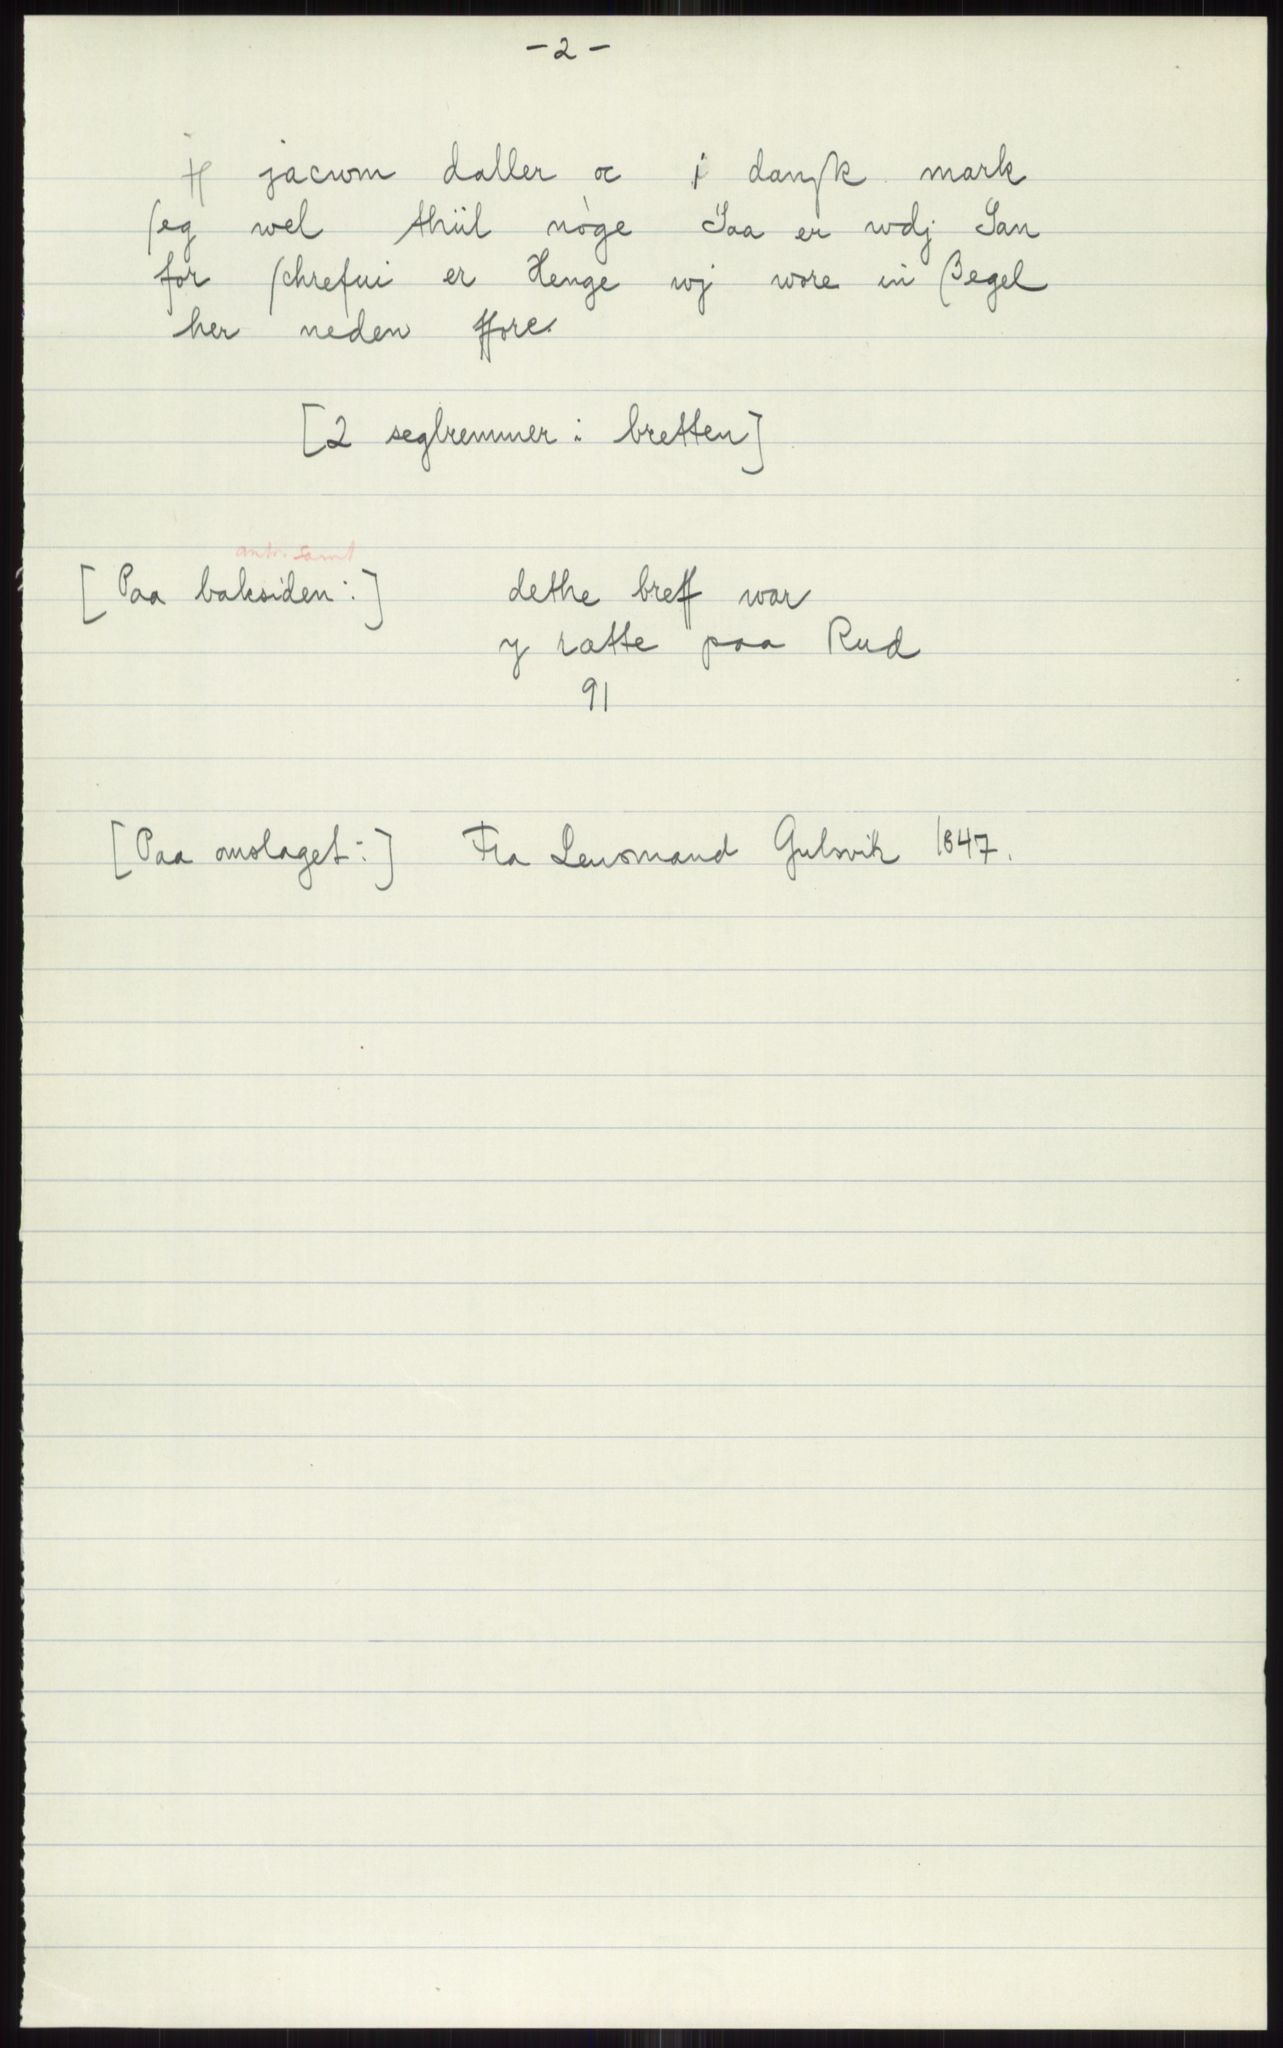 - 2 -
jacwm daller oc j danſk mark
ſeg wel thiil nøge Saa er wdj San
for ſchrefui er Henge wj wore in ſegel
her neden ffore.
[2 seglremmer i bretten]
[Paa baksiden:] dethe breff war
y ratte paa Rud
91
[Paa omslaget:] Fra Lensmand Gulsvik 1847.